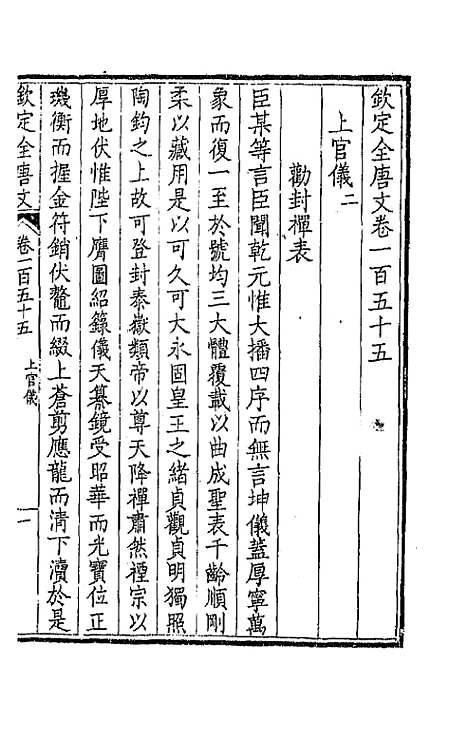 欽定全唐文卷一百五十五
上官儀二
勸封禪表
臣某等言臣聞乾元惟大播四序而無言坤儀蓋厚寧萬
象而復一至於號均三大體覆載以曲成聖表千齡順剛
柔以藏用是以可久可大永固皇王之緒貞觀貞明獨照
陶鈞之上故可登封泰嶽類帝以尊天降禪肅然禋宗以
厚地伏惟陛下膺圖紹籙儀天纂鏡受昭華而光寶位正
璣衡而握金符銷伏鼇而綴上蒼剪應龍而清下瀆於是
欽定全唐文
卷一百五十五
上官儀
一